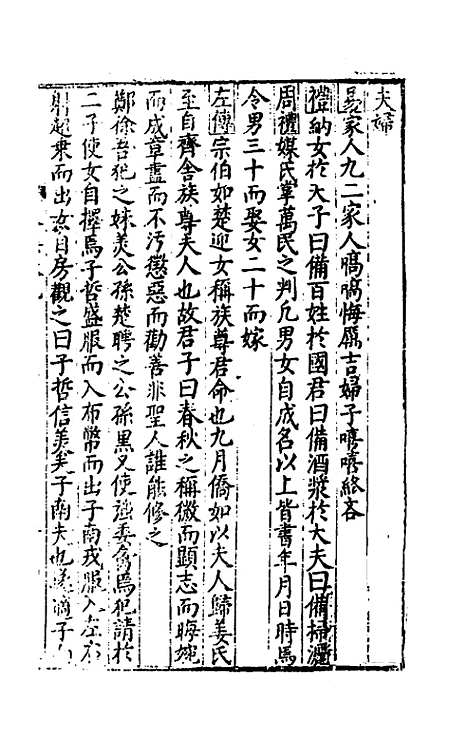 夫婦
易家人九二家人嗃嗃悔厲吉婦子嘻嘻終吝
禮納女於天子曰備百姓於國君曰備酒漿於大夫曰備掃灑
周禮媒氏掌萬民之判凡男女自成名以上皆書年月日時焉
令男三十而娶女二十而嫁
左傳宗伯如楚迎女稱族尊君命也九月僑如以夫人歸姜氏
至自齊舍族尊夫人也故君子曰春秋之稱微而顯志而晦婉
而成章盡而不汚懲惡而勸善非聖人誰能修之
鄭徐吾犯之妹美公孫楚聘之公孫黑又使強委禽焉犯請於
二子使女自擇焉子晳盛服而入布幣而出子南戎服入左右
射超乘而出女自房觀之曰子晳信美矣子南夫也遂適子